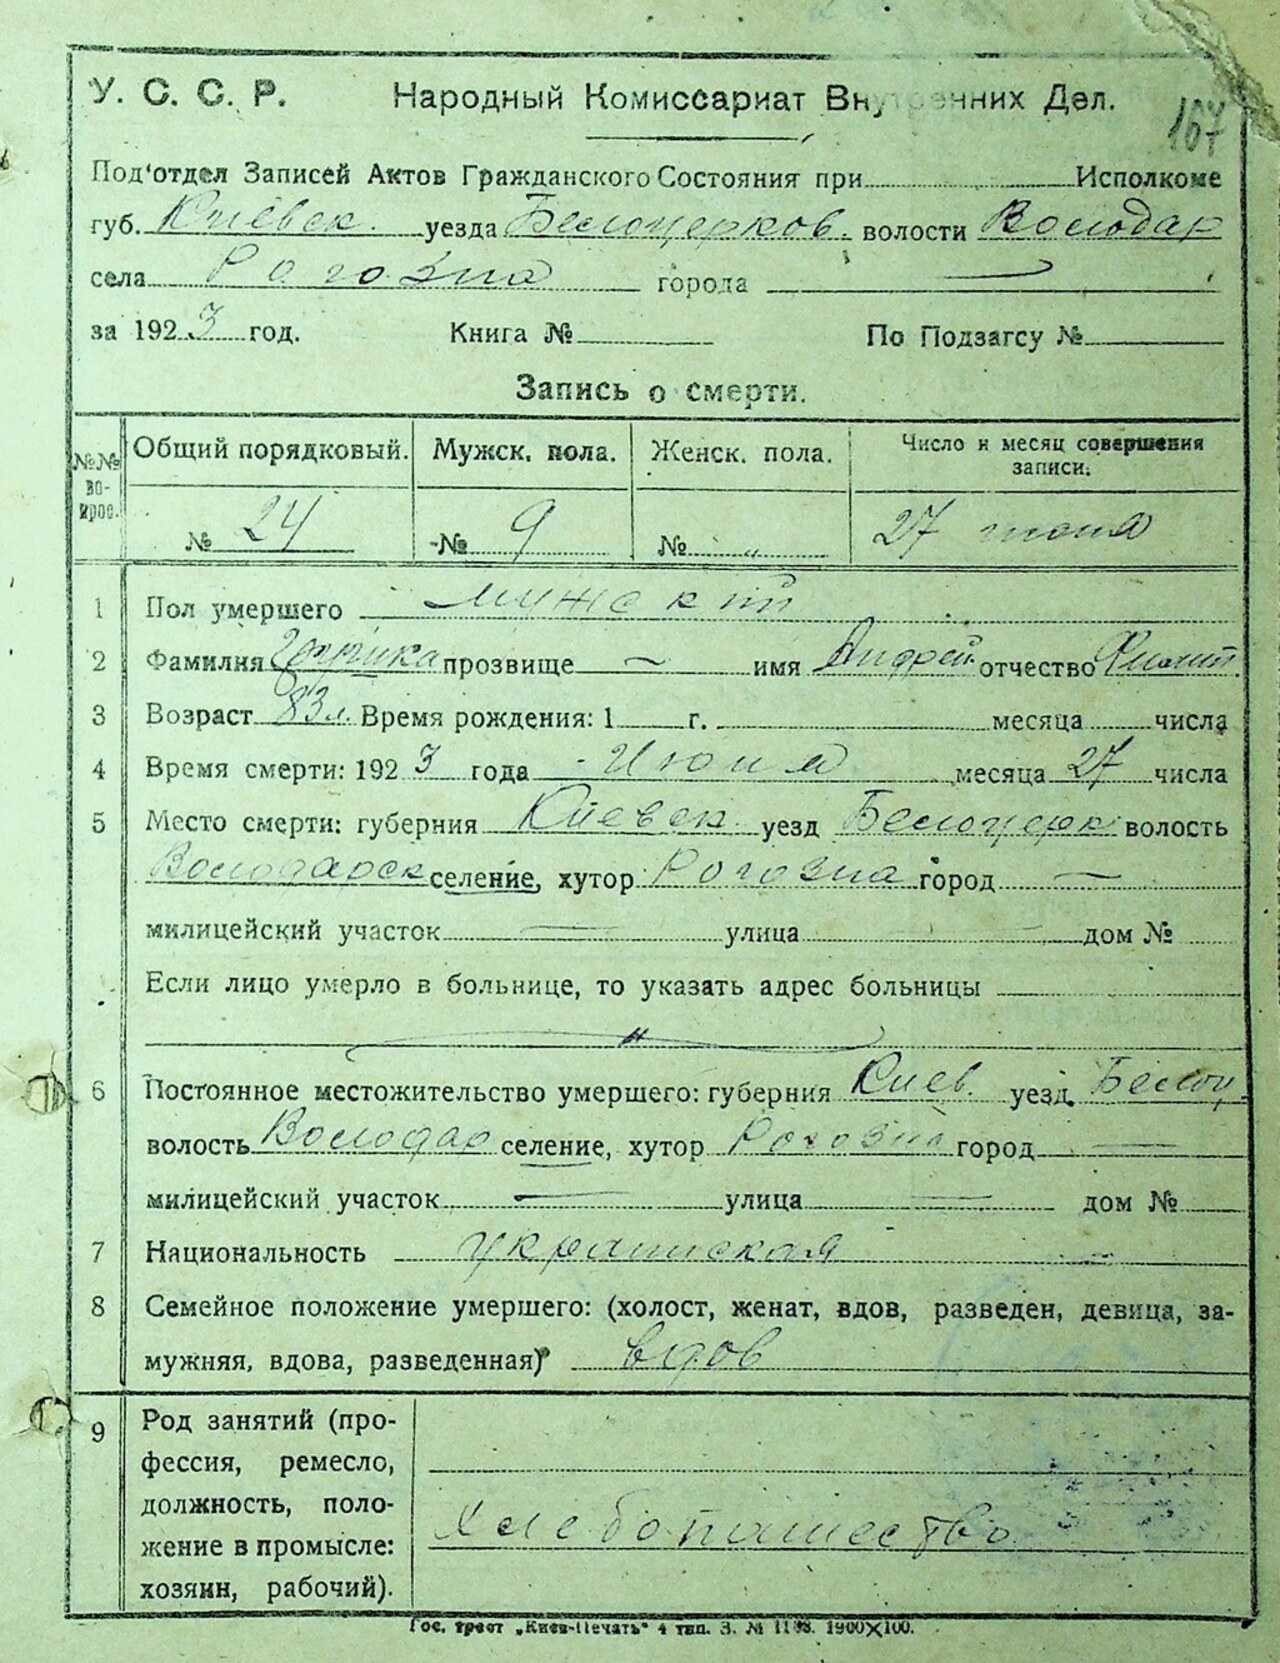 У. С. С. Р. Народный Комиссариат Внутренних Дел.
167
Под'отдел Записей Актов Гражданского Состояния при Исполкоме
губ. Киевск. уезда Белоцерков. волости Володар
села Рогозна города —
за 1923 год. Книга № По Подзагсу №
Запись о смерти.
№№ во-проc. Общий порядковый. Мужск. пола. Женск. пола. Число и месяц совершения
записи.
№ 24 № 9 № „ 27 июня
1 Пол умершего мужский
2 Фамилия прозвище — имя Андрей отчество Филип.
3 Возраст 83 л. Время рождения: 1 г. месяца числа
4 Время смерти: 1923 года Июня месяца 27 числа
5 Место смерти: губерния Киевск уезд Белоцерк волость
Володарск селение, хутор Рогозна город —
милицейский участок — улица — дом №
Если лицо умерло в больнице, то указать адрес больницы
— „ —
6 Постоянное местожительство умершего: губерния Киев. уезд. Белоц
волость Володар селение, хутор Рогозна город —
милицейский участок — улица — дом №
7 Национальность украинская —
8 Семейное положение умершего: (холост, женат, вдов, разведен, девица, за-
мужняя, вдова, разведенная) вдов
9 Род занятий (про-
фессия, ремесло,
должность, поло-
жение в промысле:
хозяин, рабочий).
Хлебопашество
Гос. трест „Киев-Печать" 4 тип. З. № 1900Х100.